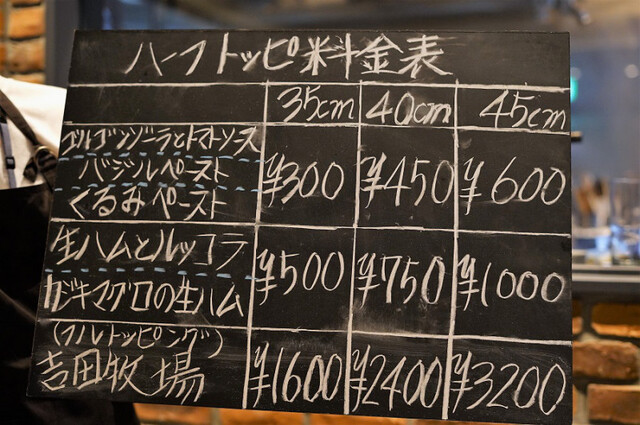 ハーフトッピ料金表
35cm 40cm 45cm
ゴルゴンゾーラとトマトソース
バジルペースト
くるみペースト
¥300 ¥450 ¥600
生ハムとルッコラ
カジキマグロの生ハム
¥500 ¥750 ¥1000
(フルトッピング)
吉田牧場
¥1600 ¥2400 ¥3200